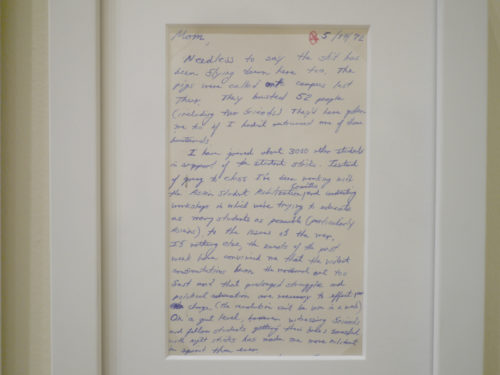 Mom, 5/14/72
Needless to say the shit has
been flying down here too. The
pigs were called on campus last
Thurs. They busted 52 people
(including two friends). They'd have gotten
me too if I hadn't outrunned one of those
I have joined about 3000 other students
in support of the student strike. Instead
of going to class I've been working with
the Asian Student and conducting
workshops in which we're trying to educate
as many students as possible (particularly
Asians), to the issues of the war.
If nothing else, the events of the past
week have convinced me that the violent
confrontations burn the movement out too
fast and that prolonged struggle and
political education are necessary to effect
change (the revolution can't be won in a week)
On a gut level, however, witnessing friends
and fellow students getting their heads smashed
with night sticks has made me more militant
in spirit than ever.